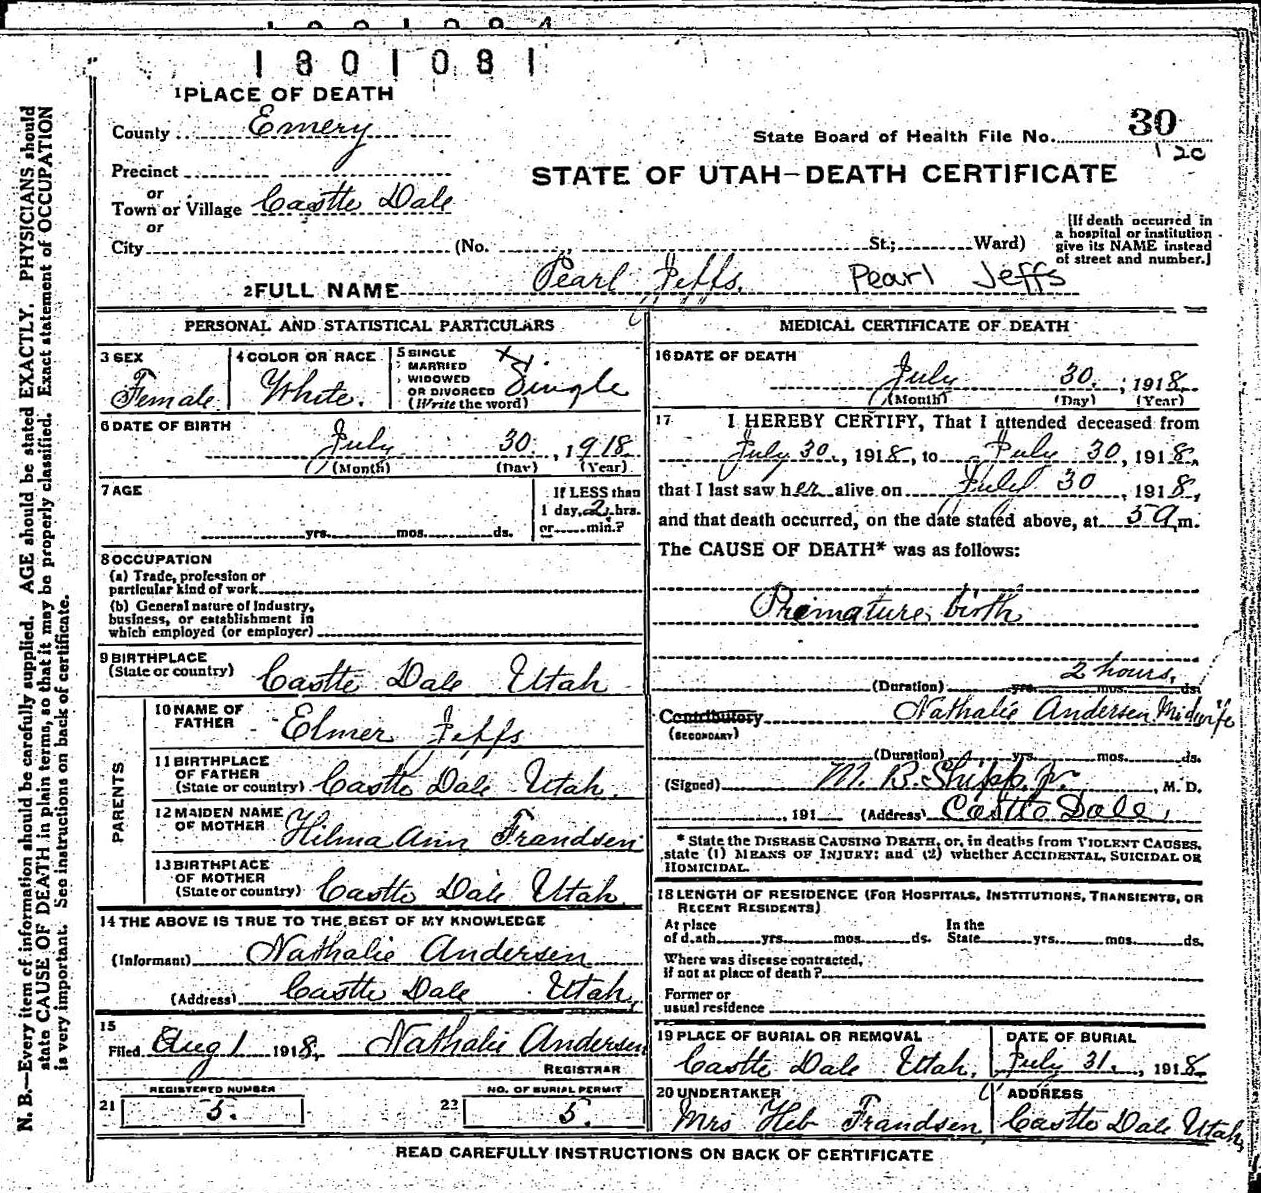 1801081
1 PLACE OF DEATH
County Emery
State Board of Health File No. 30
120
Precinct
STATE OF UTAH—DEATH CERTIFICATE
or
Town or Village Castle Dale
or
City (No. St.; Ward)
[If death occurred in
a hospital or institution
give its NAME instead
of street and number.]
2 FULL NAME Pearl Jeffs. Pearl Jeffs
PERSONAL AND STATISTICAL PARTICULARS
3 SEX
Female
4 COLOR OR RACE
White.
5 SINGLE
MARRIED
WIDOWED
OR DIVORCED
(Write the word)
Single
6 DATE OF BIRTH
July 30, 1918
(Month) (Day) (Year)
7 AGE
yrs. mos. ds.
If LESS than
1 day, 2 hrs.
or min.?
8 OCCUPATION
(a) Trade, profession or
particular kind of work
(b) General nature of Industry,
business, or establishment in
which employed (or employer)
9 BIRTHPLACE
(State or country) Castle Dale Utah
PARENTS
10 NAME OF
FATHER Elmer Jeffs
11 BIRTHPLACE
OF FATHER
(State or country) Castle Dale Utah.
12 MAIDEN NAME
OF MOTHER Hilma Ann Frandsen
13 BIRTHPLACE
OF MOTHER
(State or country) Castle Dale Utah
14 THE ABOVE IS TRUE TO THE BEST OF MY KNOWLEDGE
(Informant) Nathalie Andersen
(Address) Castle Dale Utah,
15
Filed Aug 1 1918. Nathalie Andersen
REGISTRAR
REGISTERED NUMBER
21 5.
NO. OF BURIAL PERMIT
22 5.
MEDICAL CERTIFICATE OF DEATH
16 DATE OF DEATH
July 30. , 1918.
(Month) (Day) (Year)
17 I HEREBY CERTIFY, That I attended deceased from
July 30., 1918, to July 30, 1918,
that I last saw her alive on July 30, 1918,
and that death occurred, on the date stated above, at 5 a m.
The CAUSE OF DEATH* was as follows:
Premature birth
2 hours.
(Duration) yrs. mos. ds.
Contributory Nathalie Andersen Midwife
(SECONDARY)
(Duration) yrs. mos. ds.
(Signed) M. B. Shipp. Jr. , M. D.
, 191 (Address) Castle Dale,
* State the DISEASE CAUSING DEATH, or, in deaths from VIOLENT CAUSES,
state (1) MEANS OF INJURY; and (2) whether ACCIDENTAL, SUICIDAL OR
HOMICIDAL.
18 LENGTH OF RESIDENCE (FOR HOSPITALS, INSTITUTIONS, TRANSIENTS, OR
RECENT RESIDENTS)
At place
of death yrs. mos. ds.
In the
State yrs. mos. ds.
Where was disease contracted,
if not at place of death?
Former or
usual residence
19 PLACE OF BURIAL OR REMOVAL
Castle Dale Utah.
DATE OF BURIAL
July 31. , 1918.
20 UNDERTAKER
Mrs Heb Frandsen
ADDRESS
Castle Dale Utah,
READ CAREFULLY INSTRUCTIONS ON BACK OF CERTIFICATE
N. B.—Every item of information should be carefully supplied. AGE should be stated EXACTLY. PHYSICIANS should
state CAUSE OF DEATH in plain terms, so that it may be properly classified. Exact statement of OCCUPATION
is very important. See instructions on back of certificate.